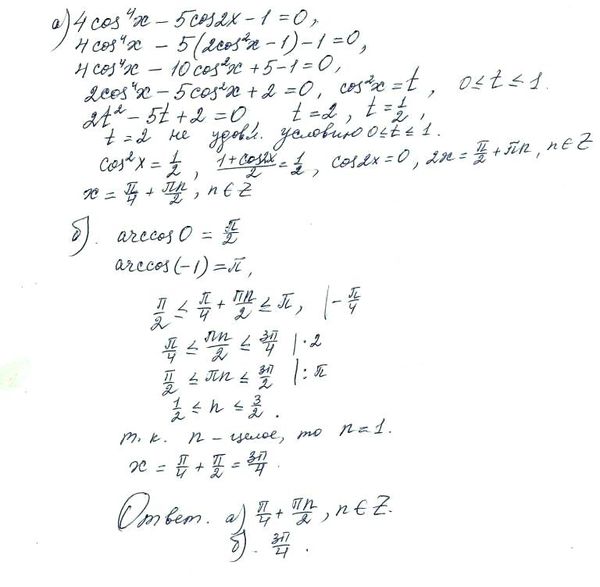 а) 4cos⁴x − 5cos2x − 1 = 0,
4cos⁴x − 5(2cos²x − 1) − 1 = 0,
4cos⁴x − 10cos²x + 5 − 1 = 0,
2cos⁴x − 5cos²x + 2 = 0, cos²x = t, 0 ≤ t ≤ 1.
2t² − 5t + 2 = 0, t = 2, t = 1/2,
t = 2 не удовл. условию 0 ≤ t ≤ 1.
cos²x = 1/2, (1+cos2x)/2 = 1/2, cos2x = 0, 2x = π/2 + πn, n∈Z
x = π/4 + πn/2, n∈Z
б). arccos 0 = π/2
arccos(−1) = π,
π/2 ≤ π/4 + πn/2 ≤ π, | − π/4
π/4 ≤ πn/2 ≤ 3π/4 | · 2
π/2 ≤ πn ≤ 3π/2 | : π
1/2 ≤ n ≤ 3/2.
т. к. n − целое, то n = 1.
x = π/4 + π/2 = 3π/4.
Ответ. а) π/4 + πn/2, n∈Z.
б). 3π/4.